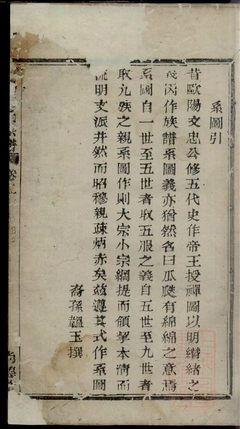 系圖引
昔歐陽文忠公修五代史作帝王授禪圖以明繼緒之
義因作族譜系圖義亦猶然名曰瓜瓞有綿綿之意焉
系圖自一世至五世者取五服之義自五世至九世者
取九族之親系圖作則大宗小宗綱提而領挈本清而
流明支派井然而昭穆親疎炳赤矣茲遵其式作系圖
裔孫 玉撰